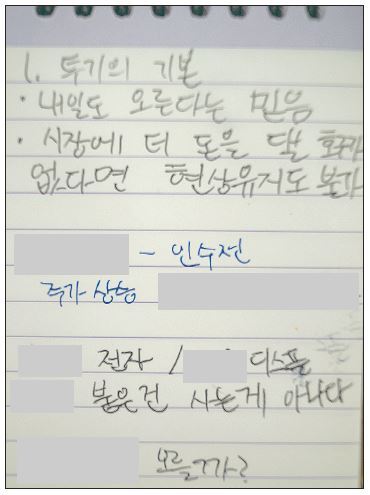 1. 투기의 기본
· 내일도 오른다는 믿음
· 시장에 더 돈을 댈
없다면 현상유지도 불가
- 인수전
주가 상승
전자 / 디스플
붙은건 사는게 아니다
오를까?